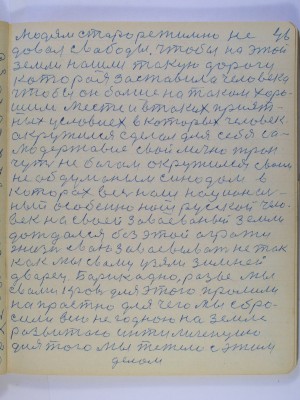 людям старорежимно не 46
довал слабоды, чтобы на этой
земли нашли такую дорогу
которая заставила человека
чтобы он больше на таком хоро-
шим месте и в таких прият-
ных условиех в которых человек
окружился сделал для себя са-
модержавие свой лично трон
чуть не богом окружился своим
не обдуманым синодом в
которах весь наш национал-
ный особенно наш русской чело-
век на своей завоеваный земли
дождался без этой ограты
жизни свою завоевывать не так
как мы свому взяли зимней
дварец барикадно, разве мы
свали кров для этого пролили
напрастно для чего мы сбро-
сили всю не годною на земле
развитою интилигенцию
для того мы тежело с этим
делом